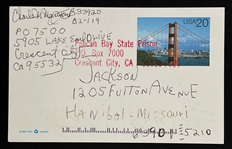 B33920
B2-119
USA 20
PO 7500
5905 Lake
Crescent City
CA 95532
Pelican Bay State Prison
P.O. Box 7000
Crescent City, CA
JACKSON
1205 FULTON AVENUE
HANIBAL-MISSOURI
63401 5210